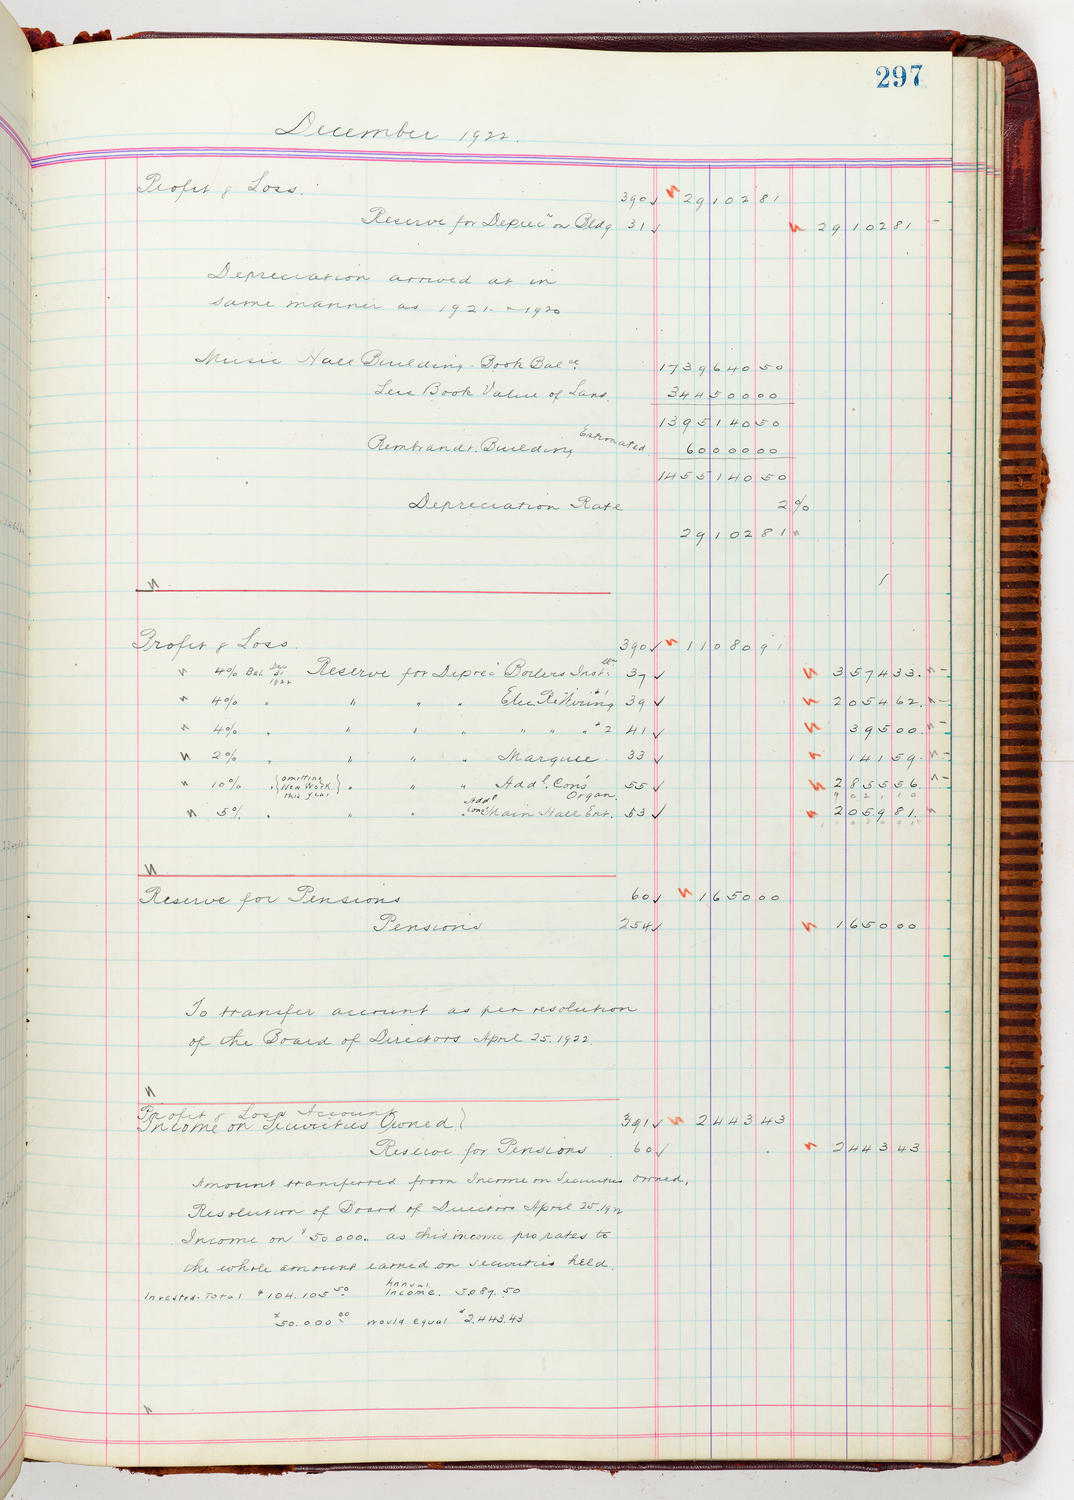 297
December 1922.
Profit & Loss. 390 ✓ 29102 81
Reserve for Deprec'n on Bldg 31 ✓ 29102 81
Depreciation arrived at in
same manner as 1921 - 1920
Music Hall Building - Book Bal ce. 1739640 50
Less Book Value of Land. 344500 00
1395140 50
Rembrandt Building Estimated. 60000 00
1455140 50
Depreciation Rate 2%
29102 81
Profit & Loss. 390 ✓ 11080 91
4% Bal. Dec 31 1922 Reserve for Deprec'n Boilers Inst. 37 ✓ 3574 33.
4% " " " " Elec. ReWiring #1 39 ✓ 2054 62.
4% " " " " " " " #2 41 ✓ 395 00.
2% " " " " Marquise 33 ✓ 141 59.
10% " {omitting New Work this year} " " " Add'l. Cons' Organ. 55 ✓ 2855 56.
9021 10
5% " " " " Add'l Cons' Main Hall Ent. 53 ✓ 2059 81.
Reserve for Pensions 60 ✓ 1650 00
Pensions 254 ✓ 1650 00
To transfer account as per resolution
of the Board of Directors April 25. 1922.
Profit & Loss Account
Income on Securities Owned } 391 ✓ 2443 43
Reserve for Pensions 60 ✓ 2443 43
Amount transferred from Income on Securities owned,
Resolution of Board of Directors April 25. 1922
Income on $50000.. as this income pro rates to
the whole amount earned on securities held.
Invested - Total $104.105 50 Annual Income. 5087.50
$50.000 00 would equal $2,443.43